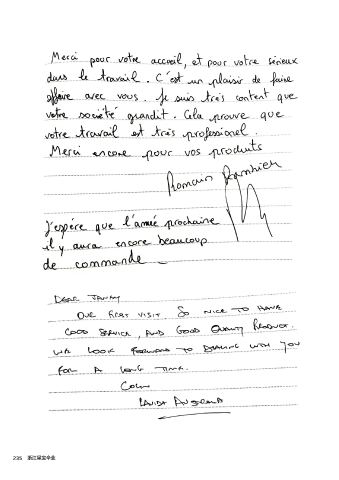 Merci pour votre accueil, et pour votre sérieux
dans le travail. C'est un plaisir de faire
affaire avec vous. Je suis très content que
votre société grandit. Cela prouve que
votre travail est très professionel.
Merci encore pour vos produits
Romain
J'espère que l'année prochaine
il y aura encore beaucoup
de commande
DEAR
OUR FIRST VISIT. SO NICE TO HAVE
GOOD SERVICE, AND GOOD QUALITY PRODUCT.
WE LOOK FORWARD TO DEALING WITH YOU
FOR A LONG TIME.
COLIN
235 浙江星宝伞业